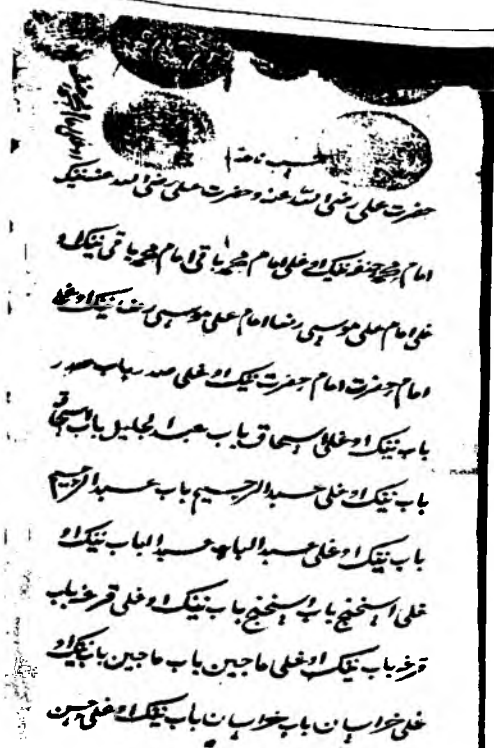 نسب نامه
حضرت علی رضی الله عنه و حضرت علی رضی الله عنه نینک
امام محمد حنفیه نینک اوغلی امام محمد باقی امام محمد باقی نینک او
غلی امام علی موسی رضا امام علی موسی رضا نینک اوغلی
امام حضرت امام حضرت نینک اوغلی صدر باب صدر
باب نینک اوغلی اسحاق باب عبد الجلیل باب اسحاق
باب نینک اوغلی عبد الرحیم باب عبد الرحیم
باب نینک اوغلی عبد الباب عبد الباب نینک او
غلی اسخنج باب اسخنج باب نینک اوغلی قرغه باب
قرغه باب نینک اوغلی ماجین باب ماجین باب نینک او
غلی خراسان باب خراسان باب نینک اوغلی حسن